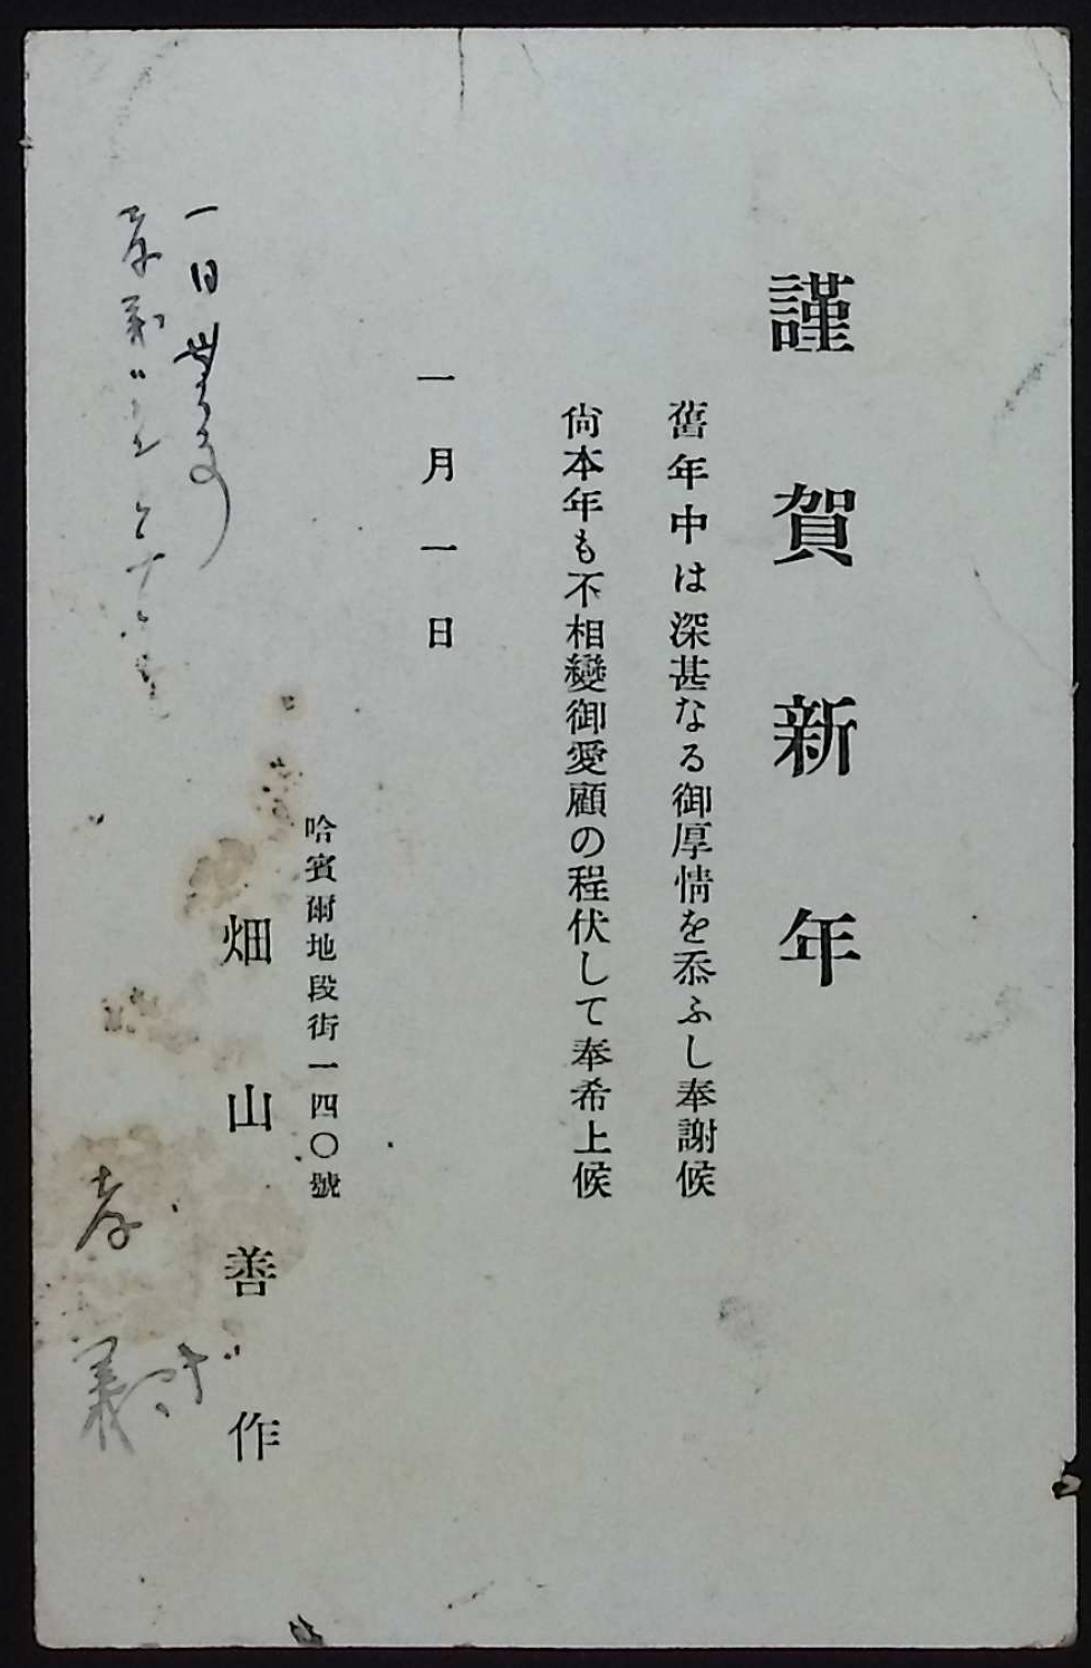 謹賀新年
舊年中は深甚なる御厚情を忝ふし奉謝候
尙本年も不相變御愛顧の程伏して奉希上候
一月一日
哈賓爾地段街一四〇號
畑山善作
一日
孝義
孝義